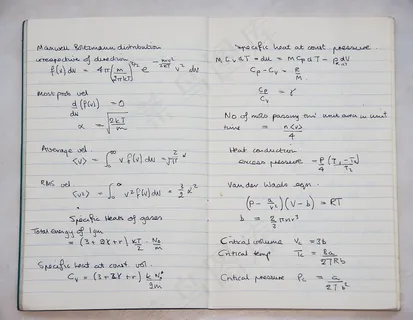 Maxwell Boltzmann distribution
irrespective of direction
f(v) dv = 4π(m/2πkT)^3/2 e^-mv²/2kT v² dv
Most prob vel
d/dv (f(v)) = 0
α = √2kT/m
Average vel
⟨v⟩ = ∫₀^∞ v f(v) dv = 2/√π α
RMS vel
⟨v²⟩ = ∫₀^∞ v² f(v) dv = 3/2 α²
Specific Heats of gases
Total energy of 1gm
= (3 + 2V + r) kT/2 · N₀/m
Specific heat at const. vol.
Cv = (3 + 2V + r) k N₀/2m
Specific heat at const pressure.
Cp - Cv = R/M
Cp/Cv = r
No of mols passing unit area in unit
time = n⟨v⟩/4
Heat conduction
excess pressure = P/4 (T₁ - T₂)/T₂
Van der Waals eqn.
(P - a/V²)(V - b) = RT
Critical volume Vc = 3b
Critical temp Tc = 8a/27Rb
Critical pressure Pc = a/27b²